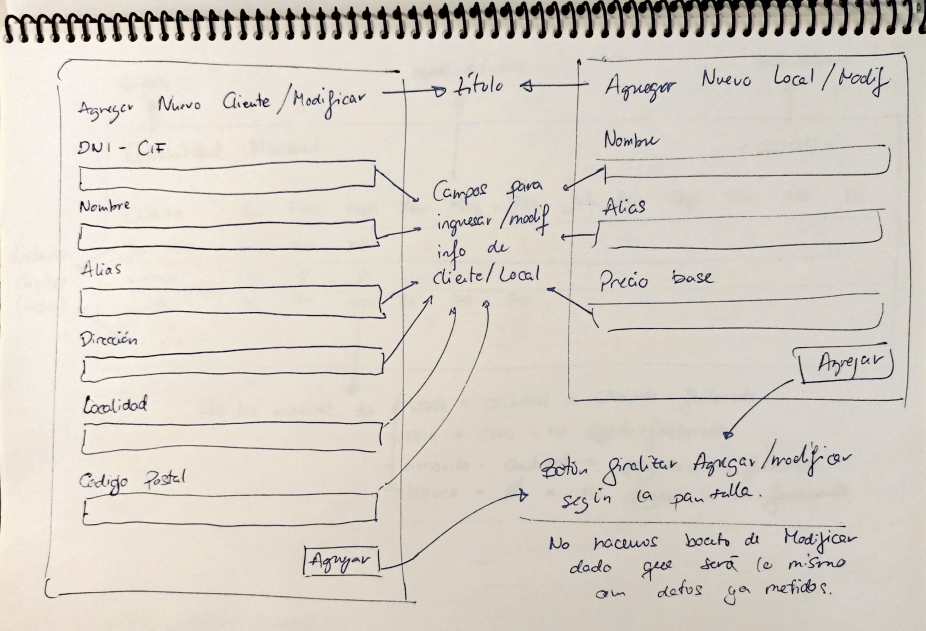 Agregar Nuevo Cliente/Modificar
DNI - CIF
Nombre
Alias
Dirección
Localidad
Código Postal
Agregar
título
Campos para
ingresar/modif
info de
cliente/Local
Agregar Nuevo Local/Modif
Nombre
Alias
Precio base
Agregar
Botón finalizar Agregar/modificar
según la pantalla.
No hacemos boceto de Modificar
dado que será lo mismo
con datos ya metidos.